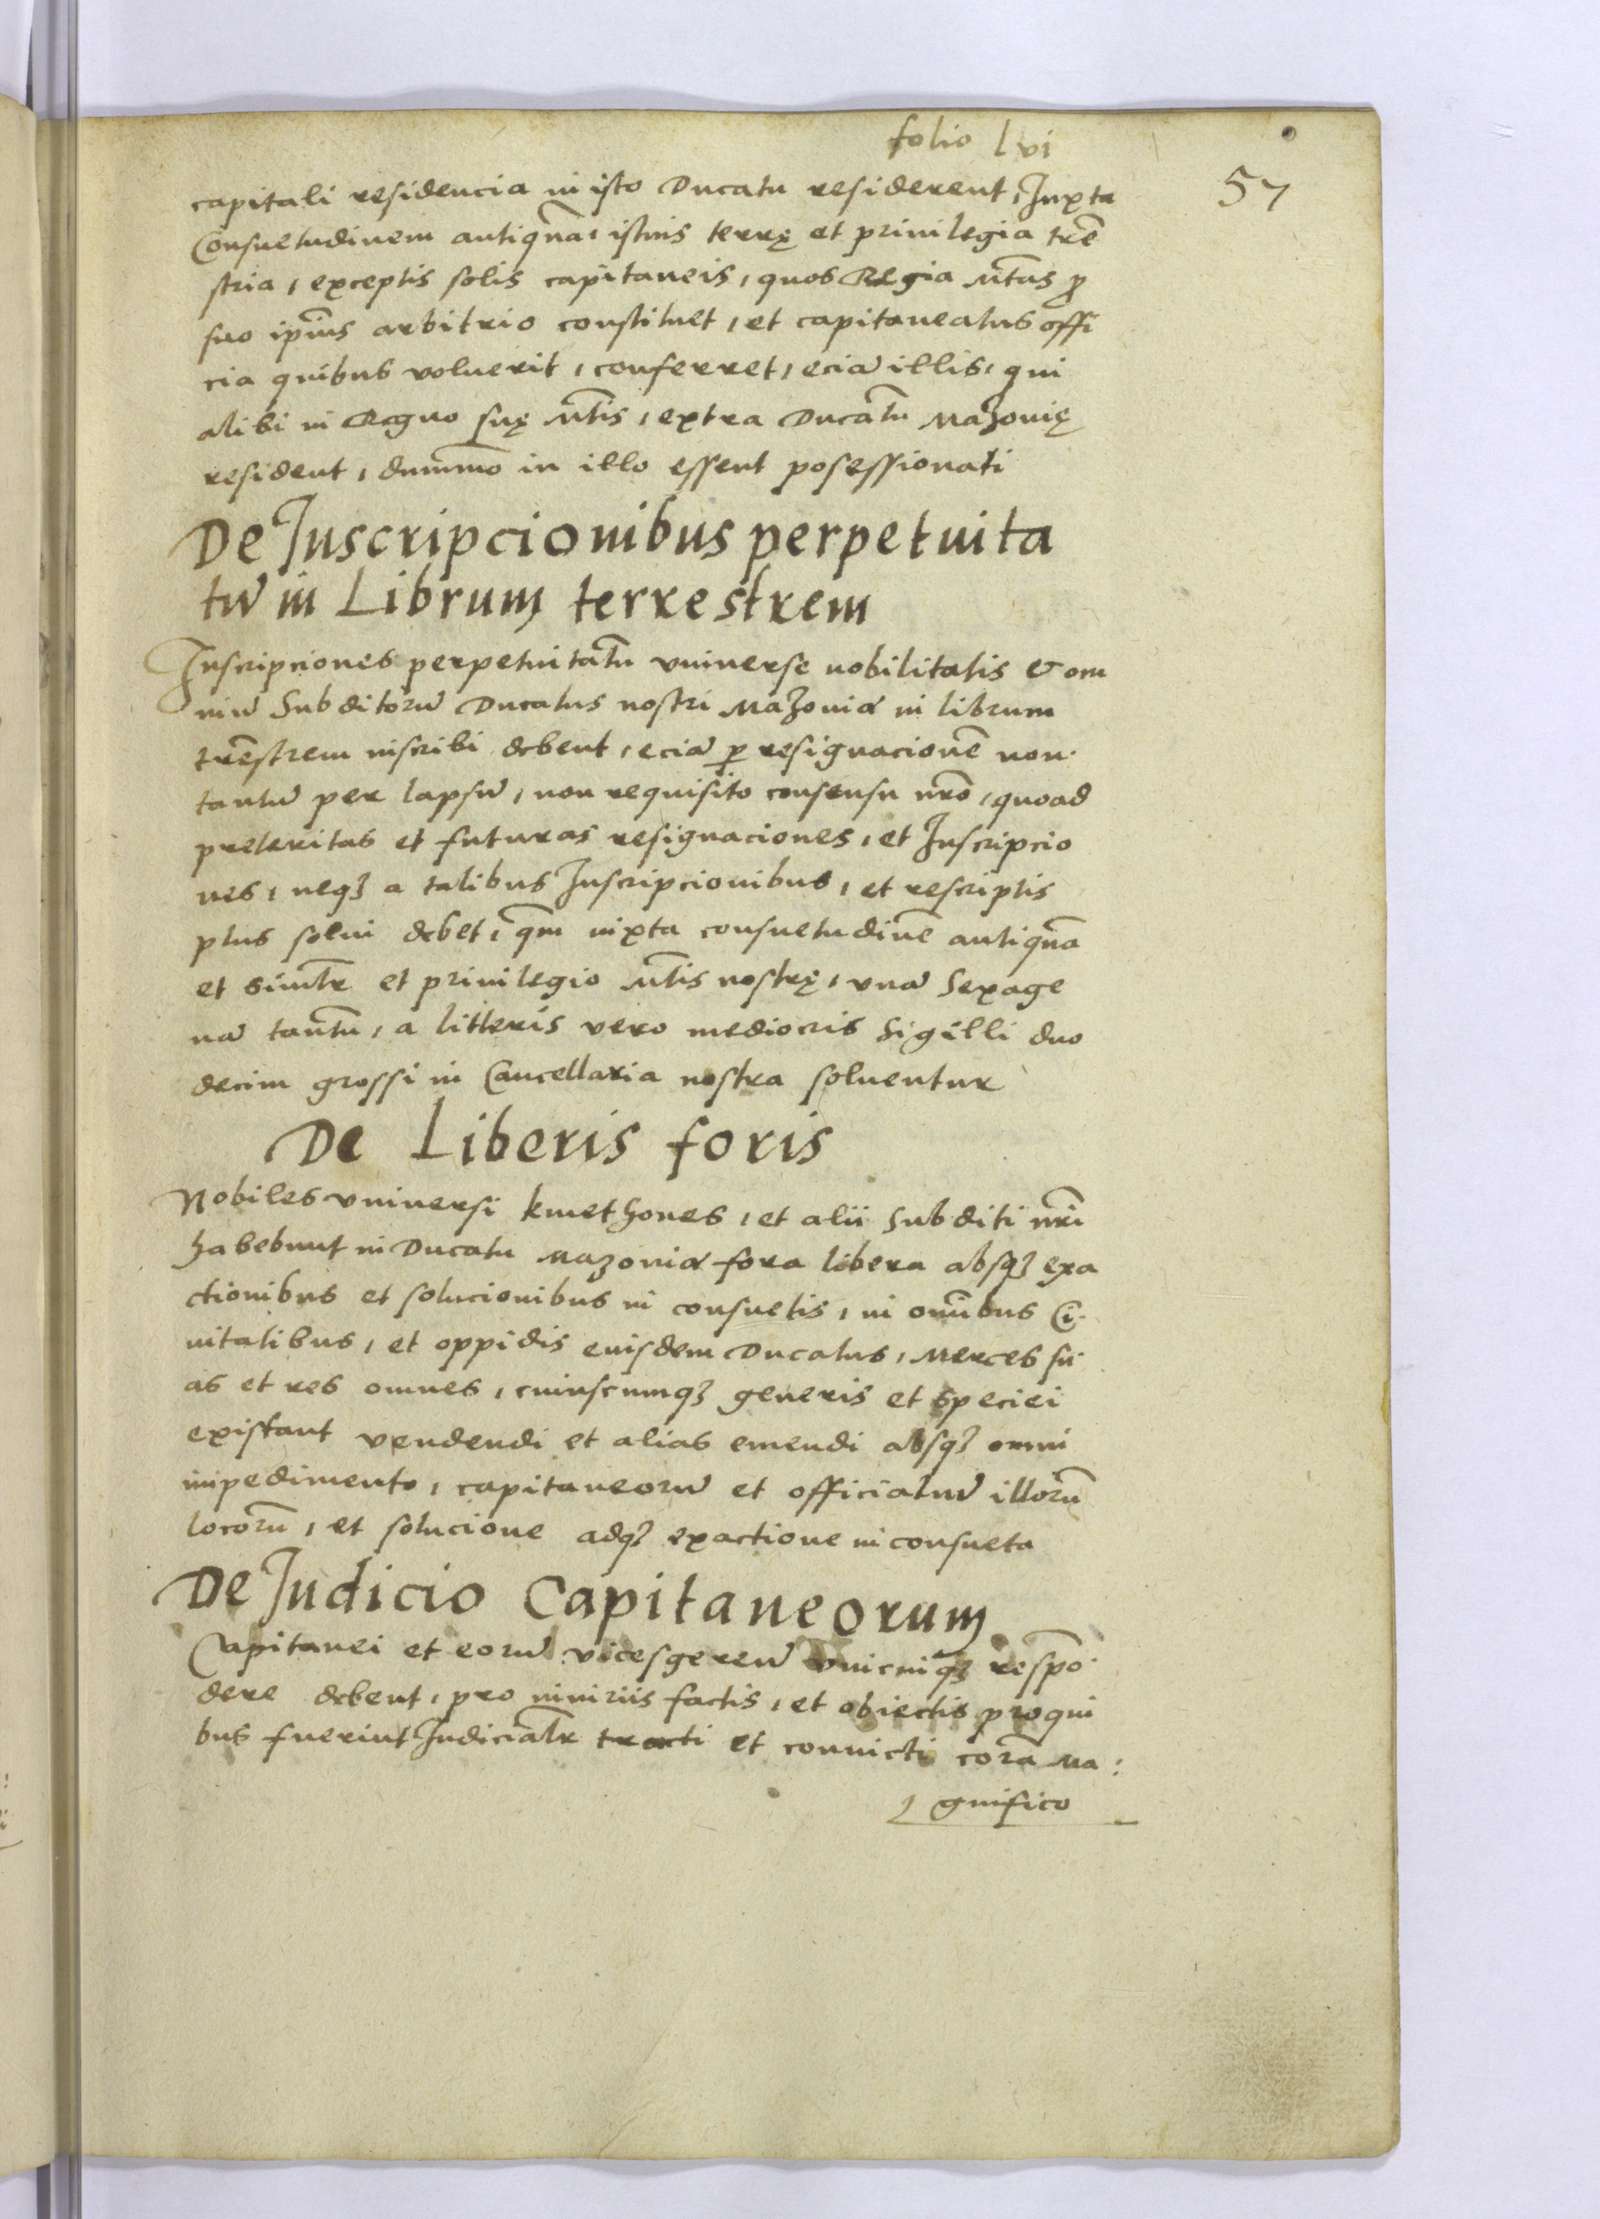 folio lvi
57
capitali residencia in isto Ducatu residerent, Juxta
Consuetudinem antiquā, istius terrę et priuilegia trē
stria, exceptis solis capitaneis, quos Regia Mtas p̱
suo ipius arbitrio constituet, et capitaneatus offi
cia quibus voluerit, conferret, eciā illis, qui
alibi in Regno suę Mtis, extra Ducatū Mazouię
resident, dummō in illo essent posessionati
De Inscripcionibus perpetuita
tū in Librum terrestrem
Inscripciones perpetuitatū vniuerse nobilitatis & om
niū Subditorū Ducatus nostri Mazouiæ in librum
trēstrem inscribi debent, eciā p̱ resignacionē non
tantū per lapsū, non requisito consensu nrō, quoad
preteritas et futuras resignaciones, et Inscripcio
nes, neqꝫ a talibus Inscripcionibus, et rescriptis
plus solui debet, qm̄ iuxta consuetudinē antiquā
et simltr et priuilegio Mtis nostrę, vnā Sexage
nā tantū, a litteris vero mediocris Sigilli duo
decim grossi in Cancellaria nostra soluentur
De Liberis foris
Nobiles vniuersi kmethones, et alii Subditi nrī
habebunt in Ducatu Mazouiæ fora libera absqꝫ exa
ctionibus et solucionibus in consuetis, in omībus Ci
uitatibus, et oppidis euisdem Ducatus, Merces su
as et res omnes, cuiuscumqꝫ generis et speciei
existant vendendi et alias emendi absqꝫ omni
impedimento, capitaneorū et officialiū illorū
locorū, et solucione adqꝫ exactione in consueta
De Judicio Capitaneorum
Capitanei et eorū vicesgerēn vnicuiqꝫ respō
dere debent, pro iniuriis factis, et obiectis pro qui
bus fuerint Judicialr tracti et conuicti corā Ma:
gnifico